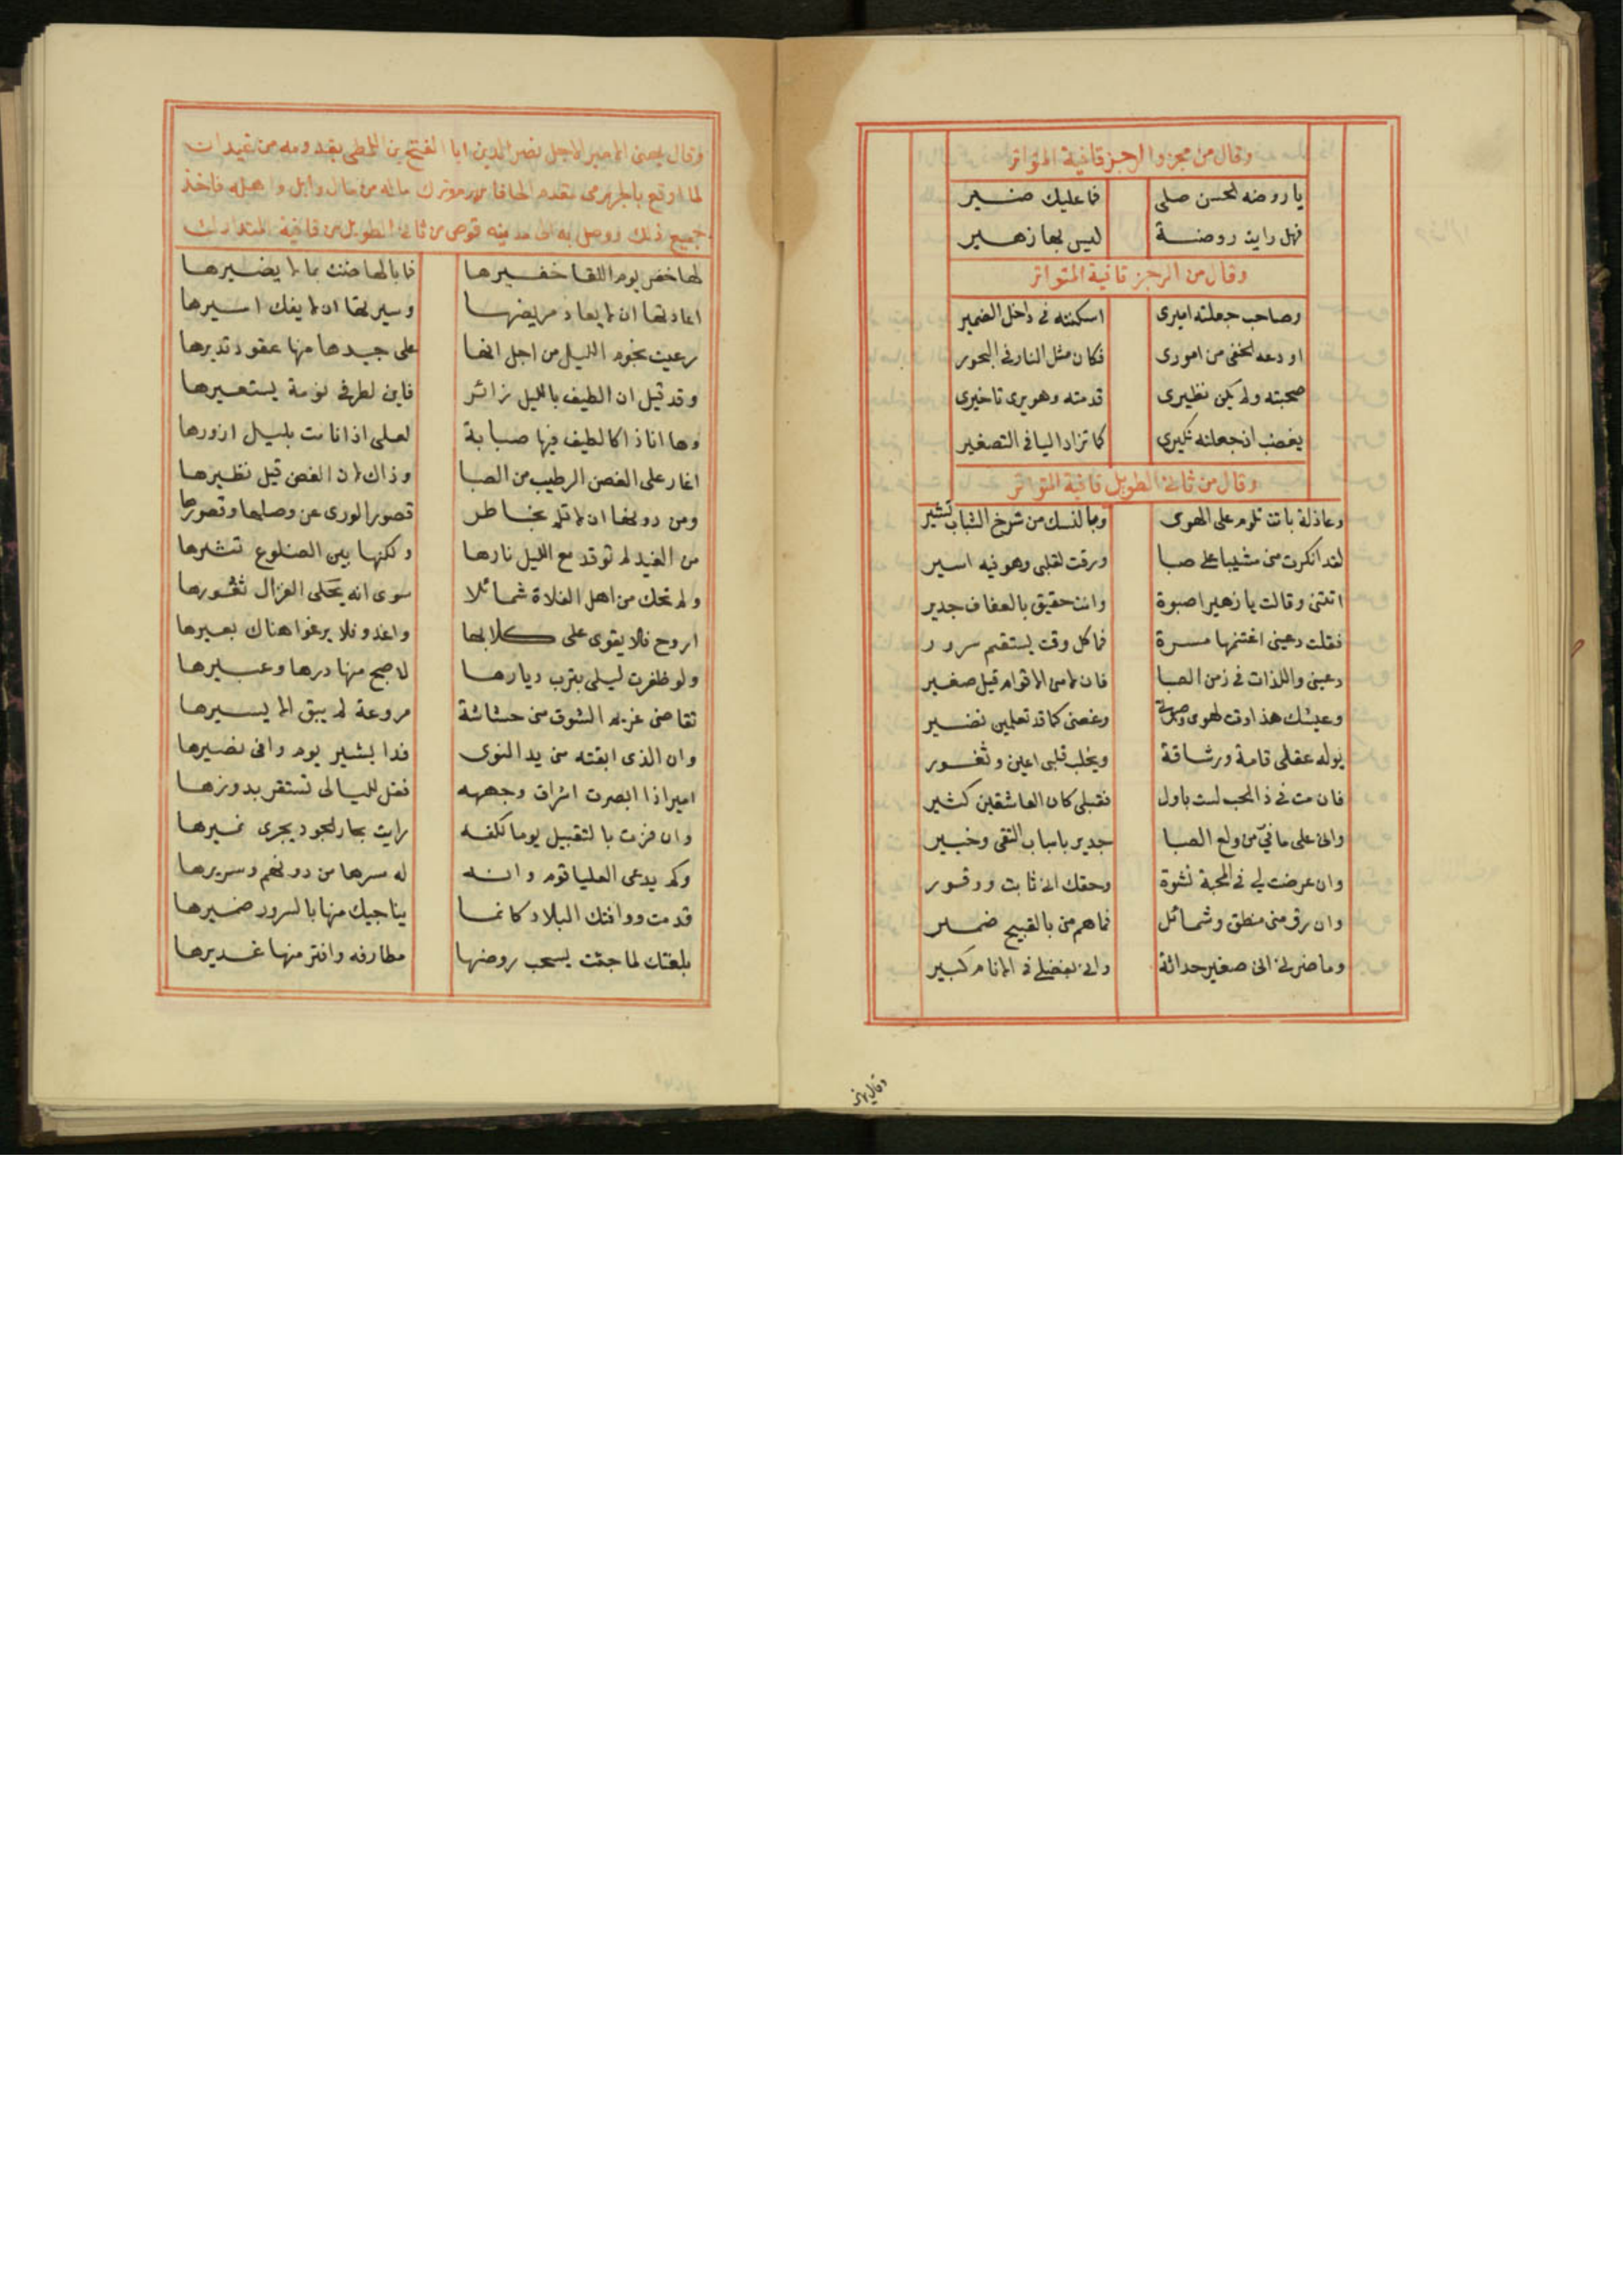 وقال من مجزو الرجز قافية المتواتر
يا روضه الحسن صلى فما عليك ضير
فهل رايت روضة ليس بها زهير
وقال من الرجز قافية المتواتر
وصاحب جعلته اميرى اسكنته فى داخل الضمير
اودعه الخفى من امورى فكان مثل النار فى البخور
صحبته ولم يكن نظيرى قدمته وهو يرى تاخيرى
يغضب اذ جعلته تكبيرى كما تزاد اليا فى التصغير
وقال من ثانى الطويل قافية المتواتر
وعاذلة باتت تلوم على الهوى وبالنسك من شرخ الشباب تشير
لقد انكرت منى مشيبا على صبا ورقت لقلبى وهو فيه اسير
اتتنى وقالت يا زهير اصبوة وانت حقيق بالعفاف جدير
فقلت دعينى اغتنمها مسرة فما كل وقت يستقم سرور
دعينى واللذات فى زمن الصبا فان لامنى الاقوام قيل صغير
وعيشك هذا وقت لهوى وصبوتى وغصنى كما قد تعلمين نضير
يوله عقلى قامة ورشاقة ويخلب قلبى اعين وثغور
فان مت فى ذا الحب لست باول فقبلى كان العاشقين كثير
وانى على ما فىّ من ولع الصبا جدير باسباب التقى وخبير
وان عرضت لى فى المحبة نشوة وحقك انى ثابت ووقور
وان رق منى منطق وشمائل فما هم منى بالقبيح ضمير
وما ضرنى انى صغير حداثة وانى بفضلى فى الانام كبير
وقال يهنى
وقال يهنى الامير الاجل نصير الدين ابا الفتح بن اللمطى بقدومه من عيداب
لما اوقع بالجرمى مقدم وترك ماله من مال وابل واهله فاخذ
جميع ذلك ووصل به الى مدينه قوص من ثانى الطويل من قافية المتدارك
لها خفر يوم اللقا خفيرها فما بالها ضنت بما لا يضيرها
اعادتها ان لا يعاد مريضها وسيرتها ان لا يفك اسيرها
رعيت نجوم الليل من اجل انها على جيدها منها عقود تديرها
وقد قيل ان الطيف بالليل زائر فاين لطرفى نومة يستعيرها
وها انا ذا كالطيف فيها صبابة لعلى اذا نامت بليل ازورها
اغار على الغصن الرطيب من الصبا وذاك لان الغصن قيل نظيرها
ومن دونها ان لا تلم بخاطر قصور الورى عن وصلها وقصورها
من الغيد لم توقد مع الليل نارها ولكنها بين الضلوع تثيرها
ولم تحك من اهل الفلاة شمائلا سوى انه يحكى الغزال نفورها
اروح فلا يقوى على كلابها واغدو فلا يرغوا هناك بعيرها
ولو ظفرت ليلى بترب ديارها لاصبح منها درها وعبيرها
تقاضى غريم الشوق منى حشاشة مروعة لم يبق الا يسيرها
وان الذى ابقته منى يد النوى فدا بشير يوم وافى نصيرها
امير اذا ابصرت اشراق وجهه فقل لليالى تستقر بدورها
وان فزت بالتقبيل يوما لكفه رايت بحار الجود يجرى نميرها
وكم يدعى العليا قوم وانه له سرها من دونهم وسريرها
قدمت ووافتك البلاد كانما يناجيك منها بالسرور ضميرها
تلقتك لما جئت يسحب روضها مطارفه وافتر منها غديرها